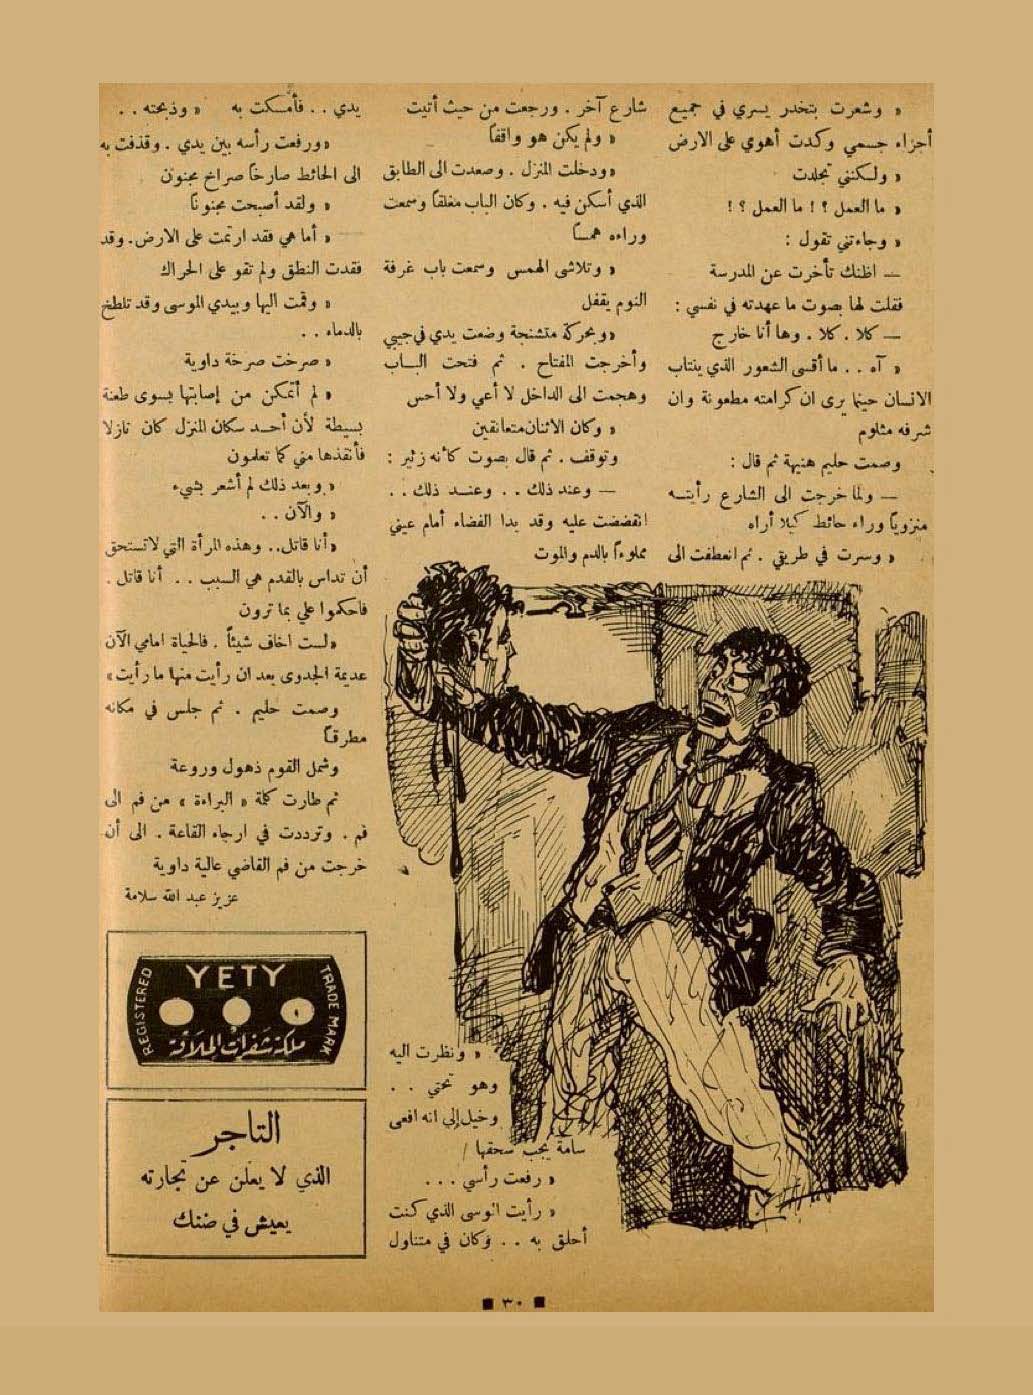 « وشعرت بتخدر يسري في جميع
أجزاء جسمي وكدت أهوي على الارض
« ولكنني تجلدت
« ما العمل ؟! ما العمل ؟!
« وجاءتني تقول :
— اظنك تأخرت عن المدرسة
فقلت لها بصوت ما عهدته في نفسي :
— كلا . كلا . وها أنا خارج
« آه . . ما أقسى الشعور الذي ينتاب
الانسان حينما يرى ان كرامته مطعونة وان
شرفه مثلوم
وصمت حليم هنيهة ثم قال :
— ولما خرجت الى الشارع رأيته
منزوياً وراء حائط كيلا أراه
« وسرت في طريقي . ثم انعطفت الى
شارع آخر . ورجعت من حيث أتيت
« ولم يكن هو واقفاً
« ودخلت المنزل . وصعدت الى الطابق
الذي أسكن فيه . وكان الباب مغلقاً وسمعت
وراءه همساً
« وتلاشى الهمس وسمعت باب غرفة
النوم يقفل
« وبحركة متشنجة وضعت يدي في جيبي
وأخرجت المفتاح . ثم فتحت الباب
وهجمت الى الداخل لا أعي ولا أحس
« وكان الاثنان متعانقين
وتوقف . ثم قال بصوت كأنه زئير :
— وعند ذلك . . وعند ذلك . .
انقضضت عليه وقد بدا الفضاء أمام عيني
مملوءاً بالدم والموت
« ونظرت اليه
وهو تحتي . .
وخيل إلي انه افعى
سامة يجب سحقها !
« رفعت رأسي . . .
« رأيت الموسى الذي كنت
أحلق به . . وكان في متناول
يدي . . فأمسكت به « وذبحته . .
« ورفعت رأسه بين يدي . وقذفت به
الى الحائط صارخاً صراخ مجنون
« ولقد أصبحت مجنوناً
« أما هي فقد ارتمت على الارض . وقد
فقدت النطق ولم تقو على الحراك
« وقمت اليها وبيدي الموسى وقد تلطخ
بالدماء . .
« صرخت صرخة داوية
« لم أتمكن من إصابتها بسوى طعنة
بسيطة لأن أحد سكان المنزل كان نازلا
فأنقذها مني كما تعلمون
« وبعد ذلك لم أشعر بشيء
« والآن . .
« أنا قاتل . . وهذه المرأة التي لا تستحق
أن تداس بالقدم هي السبب . . أنا قاتل .
فاحكموا علي بما ترون
« لست اخاف شيئاً . فالحياة امامي الآن
عديمة الجدوى بعد ان رأيت منها ما رأيت »
وصمت حليم . ثم جلس في مكانه
مطرقاً
وشمل القوم ذهول وروعة
ثم طارت كلمة « البراءة » من فم الى
فم . وترددت في ارجاء القاعة . الى أن
خرجت من فم القاضي عالية داوية
عزيز عبد الله سلامة
YETY
REGISTERED
TRADE MARK
ملكة شفرات الحلاقة
التاجر
الذي لا يعلن عن تجارته
يعيش في ضنك
■ ٣٠ ■